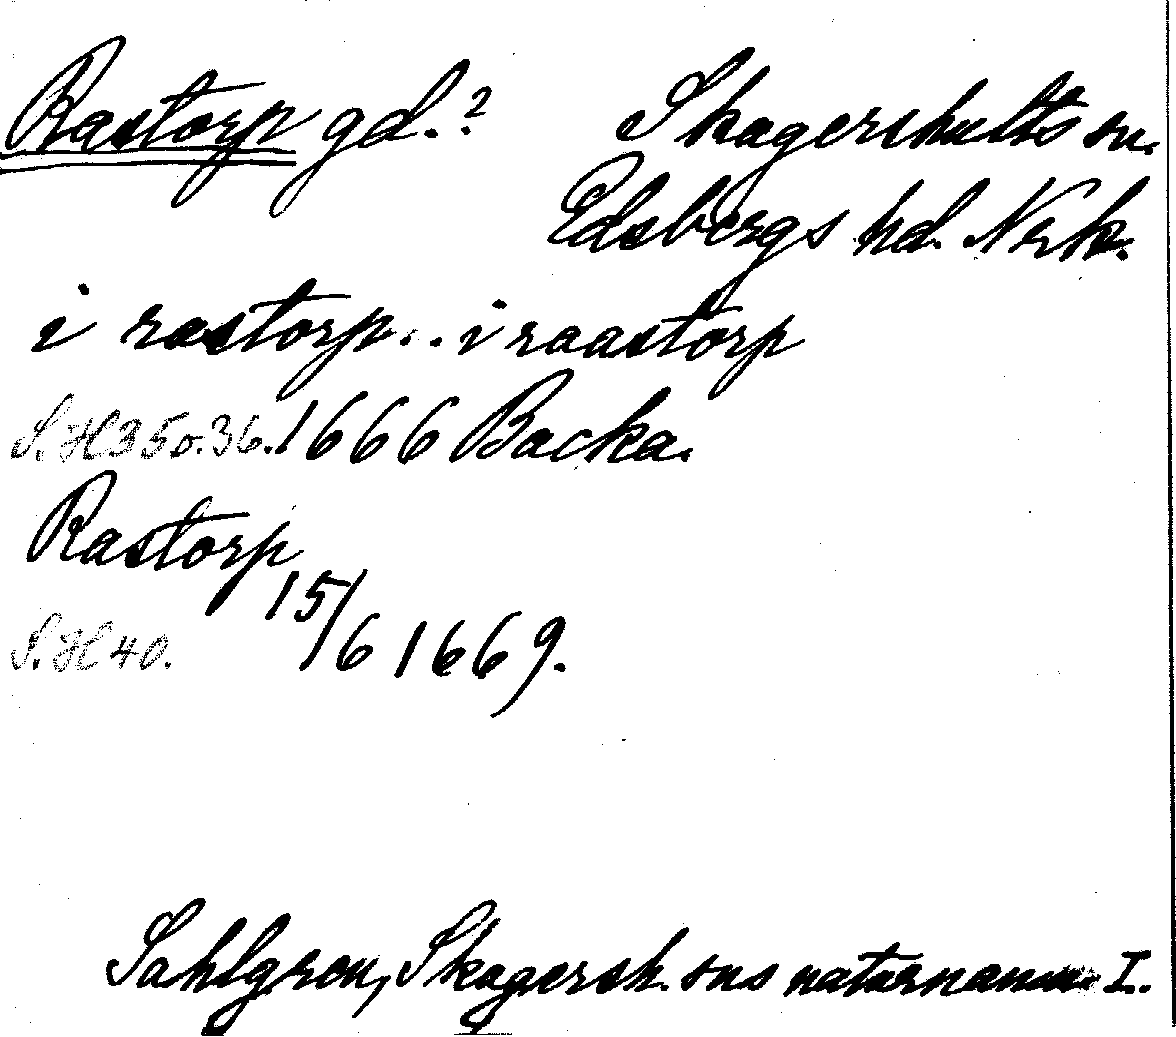 Rastorp gd.? Skagershults sn.
Edsbergs hd. Nrk.
i rastorp... i raastorp
S.H 35 o. 36. 1666 Backa.
Rastorp
15/6 1669.
S.H 40.
Sahlgren, Skagersh. sns naturnamn I.